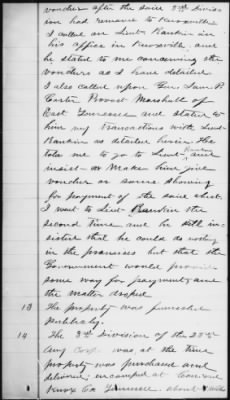 voucher after the said 3rd Divis
ion had remove to Knoxville
I called on Lieut. Rankin in
his office in Knoxville, and
he stated to me concerning the
vouchers as I have detailed
I also called upon Gen. Sam P.
Carter Provost Marshall of
East Tennessee and stated to
him my transactions with Lieut
Rankin as detailed herein. He
told me to go to Lieut. Rankin and
insist on make him give
voucher or some showing
for payment of the said
I went to Lieut. Rankin the
second time and he still in-
sisted that he could do nothing
in the premises but that the
Government would provide
some way for payment and
the matter droped
13 The property was furnished
publicly.
14 The 3rd Division of the 23rd
Army Corps. was at the time
property was purchased and
delivered, encamped at
Knox Co Tennessee. about